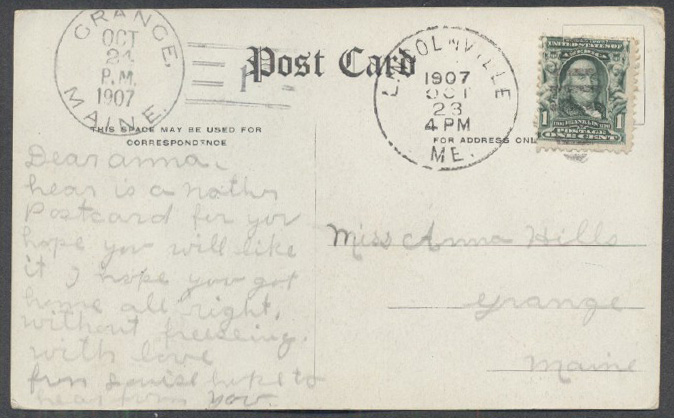 GRANGE,
OCT
24
P.M.
1907
MAINE.
Post Card
LINCOLNVILLE
1907
OCT
23
4 PM
ME.
UNITED STATES OF
AMERICA
1 1
POSTAGE
ONE CENT
THIS SPACE MAY BE USED FOR
CORRESPONDENCE
FOR ADDRESS ONL
Dear anna,
hear is a nother
Postcard for you
hope you will like
it I hope you got
home all right,
without freeseing.
with love
from Louise hope to
hear from you.
Miss Anna Hills
Grange
Maine